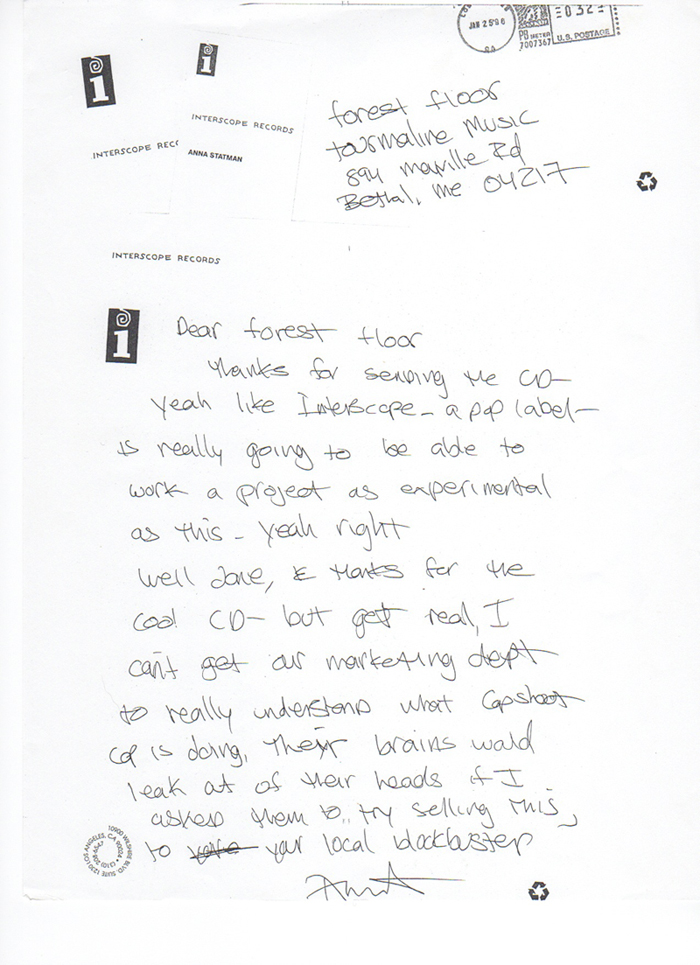 JAN 25 96
PB METER
7007367 U.S. POSTAGE
i
i
INTERSCOPE RECORDS
INTERSCOPE REC
ANNA STATMAN
forest floor
tourmaline Music
894 mayville Rd
Bethal, Me 04217
INTERSCOPE RECORDS
i
Dear forest floor
thanks for sending the CD-
yeah like Interscope - a pop label-
is really going to be able to
work a project as experimental
as this - yeah right
well done, & thanks for the
cool CD- but get real, I
can't get our marketing dept
to really understand what Capshoot
Cop is doing, their brains would
leak out of their heads if I
asked them to.. try selling this,
to your local blockbuster
Anna
10900 WILSHIRE BLVD. SUITE 1230 LOS ANGELES, CA 90024